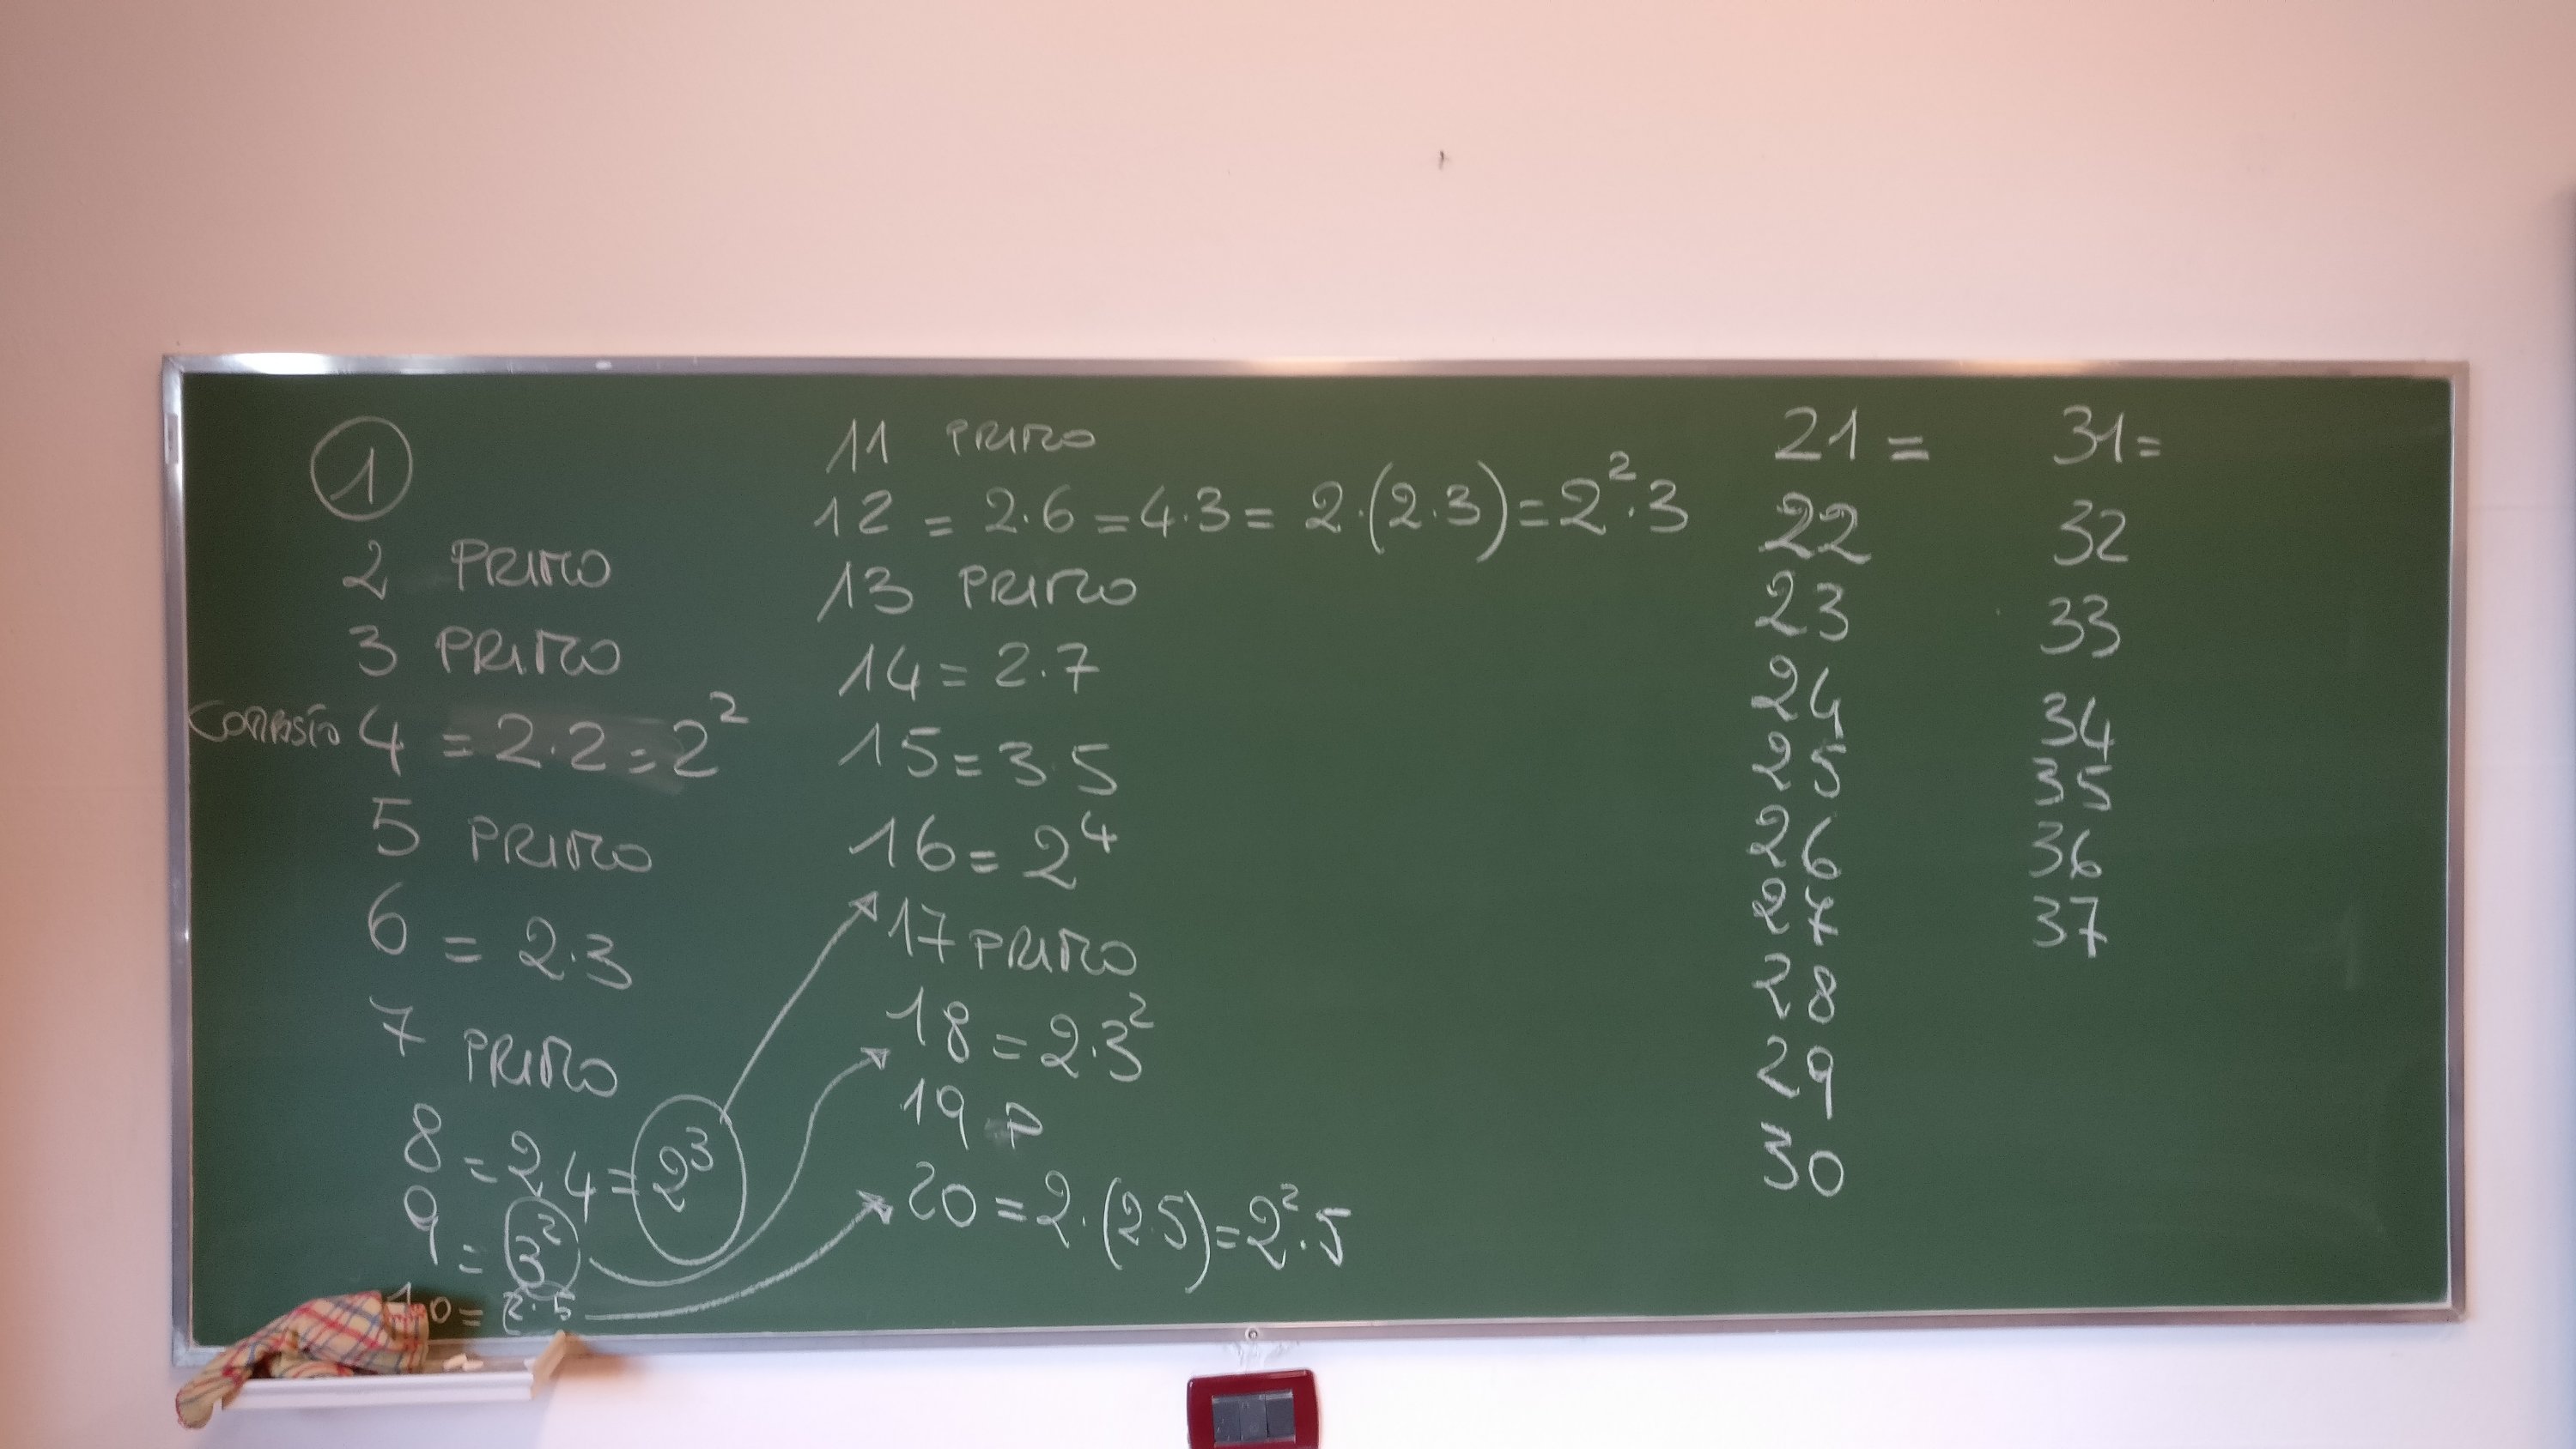 1
2 PRIMO
3 PRIMO
4 = 2·2 = 2²
5 PRIMO
6 = 2·3
7 PRIMO
8 = 2·4 = 2³
9 = 3²
10 = 2·5
11 PRIMO
12 = 2·6 = 4·3 = 2·(2·3) = 2²·3
13 PRIMO
14 = 2·7
15 = 3·5
16 = 2⁴
17 PRIMO
18 = 2·3²
19 P
20 = 2·(2·5) = 2²·5
21 =
22
23
24
25
26
27
28
29
30
31 =
32
33
34
35
36
37